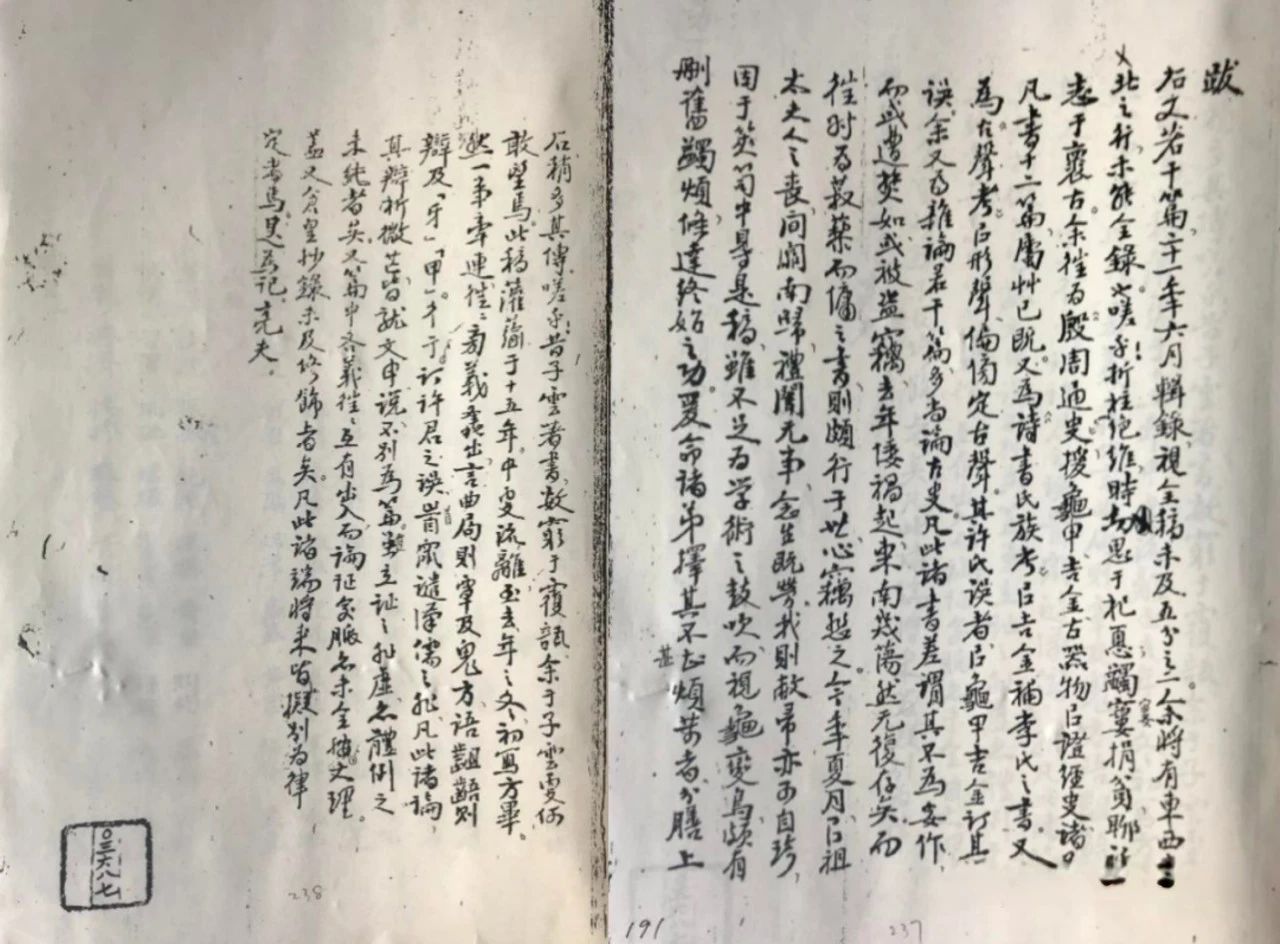 跋
右文若干篇，二十一年六月輯錄，視全稿未及五分之二，余將有東西
北之行，未能全錄也。嗟乎！折柱絕維，時勞思于杞憂，觸寠捐負，聊
志于襄古。余往為殷周通史，援龜甲吉金古器物以證經史諸。
凡書十二篇，屬艸已既。又為詩書氏族考，以吉金補李氏之書。又
為古聲考，以形聲偏傍定古聲。其許氏誤者，以龜甲吉金訂其
誤。余又為雜論若干篇，多古論古史。凡此諸書，差謂其不為妄作，
而或遭焚如，或被盜竊，去年倭禍起東南，幾蕩然无復存矣。而
往時為菽藥而傭之書，則頗行于世，心竊愁之。今年夏月，以祖
太夫人之喪，間關南歸，禮闋无事，念生既勞我，則敝帚亦可自珍，
因于筴笥中尋是稿，雖不足為學術之鼓吹，而視龜變為，頗有
刪舊蠲煩，條達終始之功。爰命諸弟擇其不甚煩蕪者分膳上
石，稍多其傳。嗟乎！昔子雲著書，數窮于覆瓿，余于子雲更何
敢望焉。此稿灌蘥于十五年，中更流離，至去年之冬，初寫方畢。
然一事牽連，往往旁義轶出，言曲局則覃及鬼方，語齟齬則
辯及「牙」「甲」。于討許君之誤，

其辯析微芒，皆就文中說，不別為篇。雖立証之非虛，亦體例之
未純者矣。又篇中各義，往往互有出入，而論証灸脈，亦未全擅文理。
蓋又倉皇抄錄，未及修飾者矣。凡此諸端，將來皆擬別為律
定者焉。是為記。亮夫。
〇三六八七
238
191
237